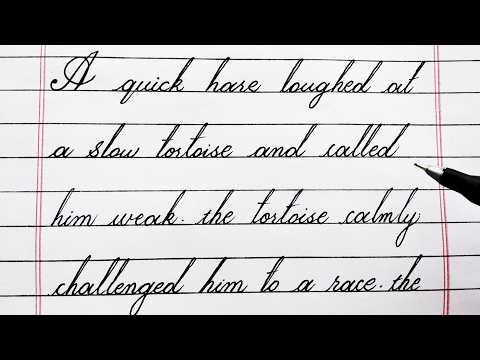 A quick hare laughed at
a slow tortoise and called
him weak. the tortoise calmly
challenged him to a race. the